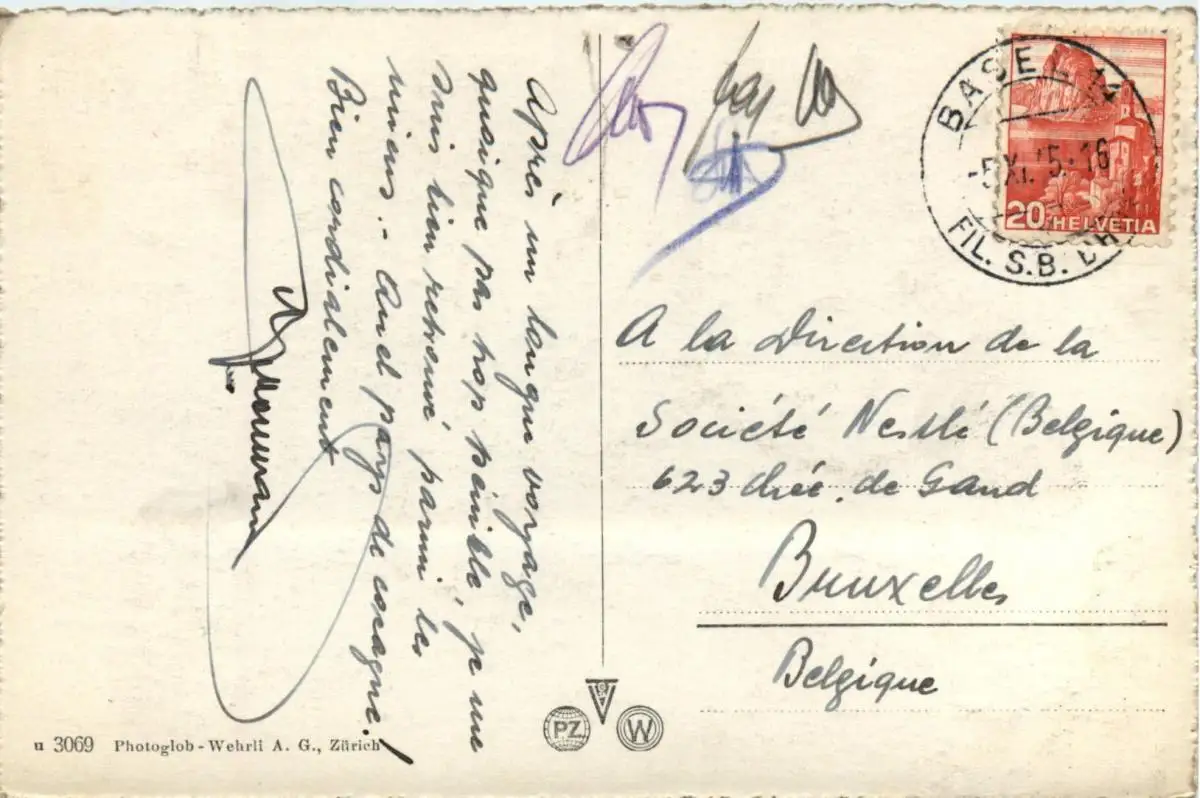 Après un longue voyage,
quoique pas trop pénible, je me
suis bien retrouvé parmi les
miens. Quel pays de cocagne!
Bien cordialement
BASEL 14
-5.XI. 5-16
FIL. S.B.
20 HELVETIA
A la Direction de la
Société Nestlé (Belgique)
623 chée. de Gand
Bruxelles
Belgique
PZ
W
u 3069 Photoglob-Wehrli A. G., Zürich